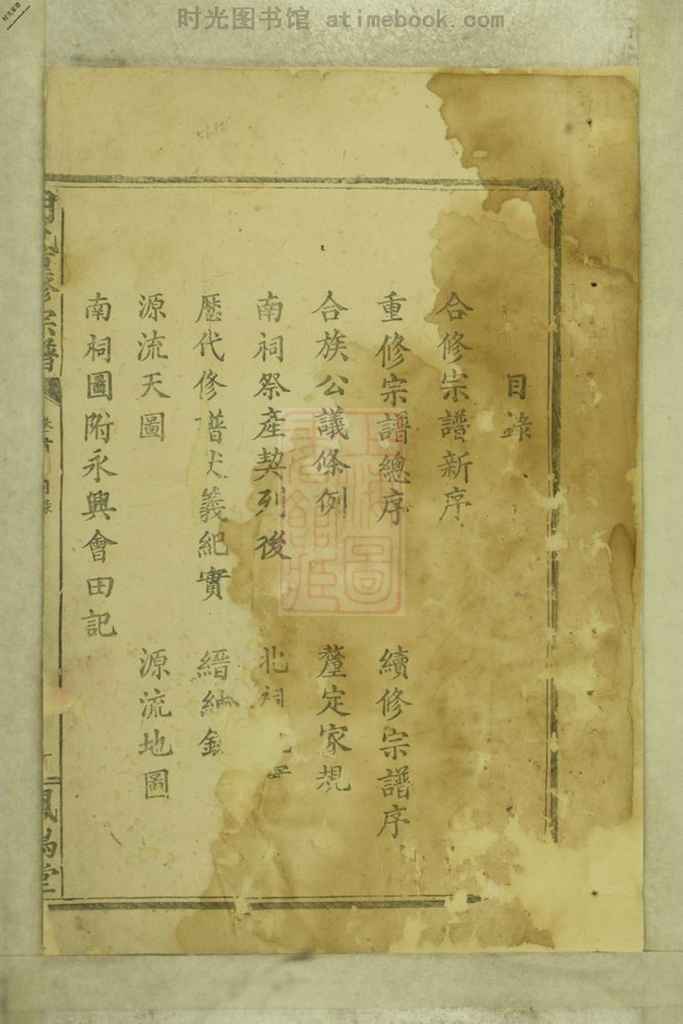 时光图书馆 atimebook.com
目錄
合修宗譜新序
重修宗譜總序 續修宗譜序
合族公議條例 釐定家規
南祠祭產契列後 北祠
歷代修譜伏義紀實 縉紳錄
源流天圖 源流地圖
南祠圖附永興會田記
修宗譜
卷首 目錄
鳳鳴堂